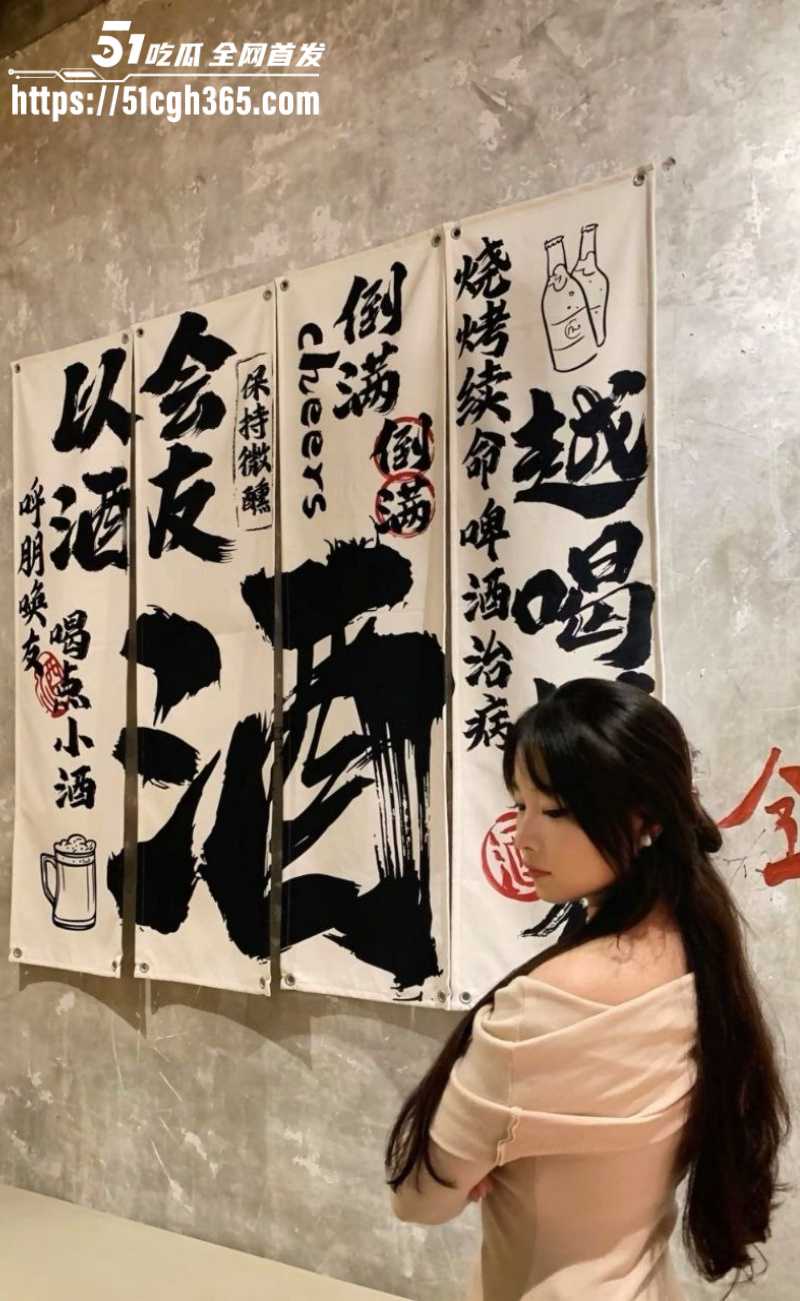 51吃瓜 全网首发
https://51cgh365.com
以酒
呼朋唤友
喝点小酒
酒
会友
保持微醺
倒满
cheers
倒满
酒
烧烤续命啤酒治病
越喝
酒
全